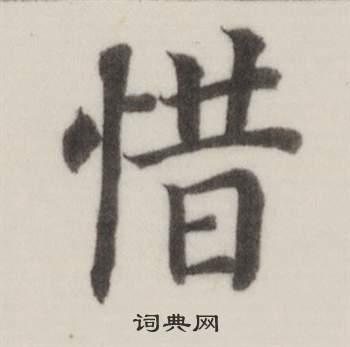 惜
词典网